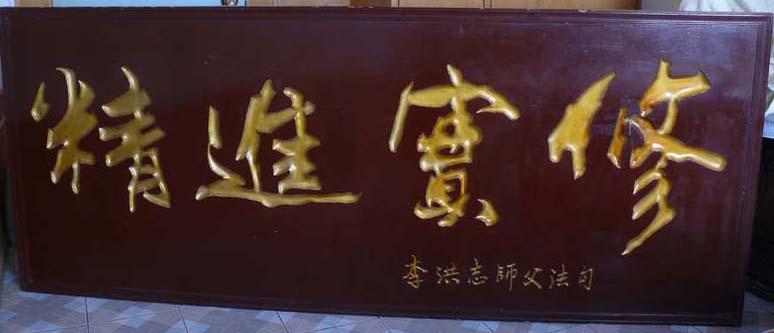 精進實修
李洪志師父法句